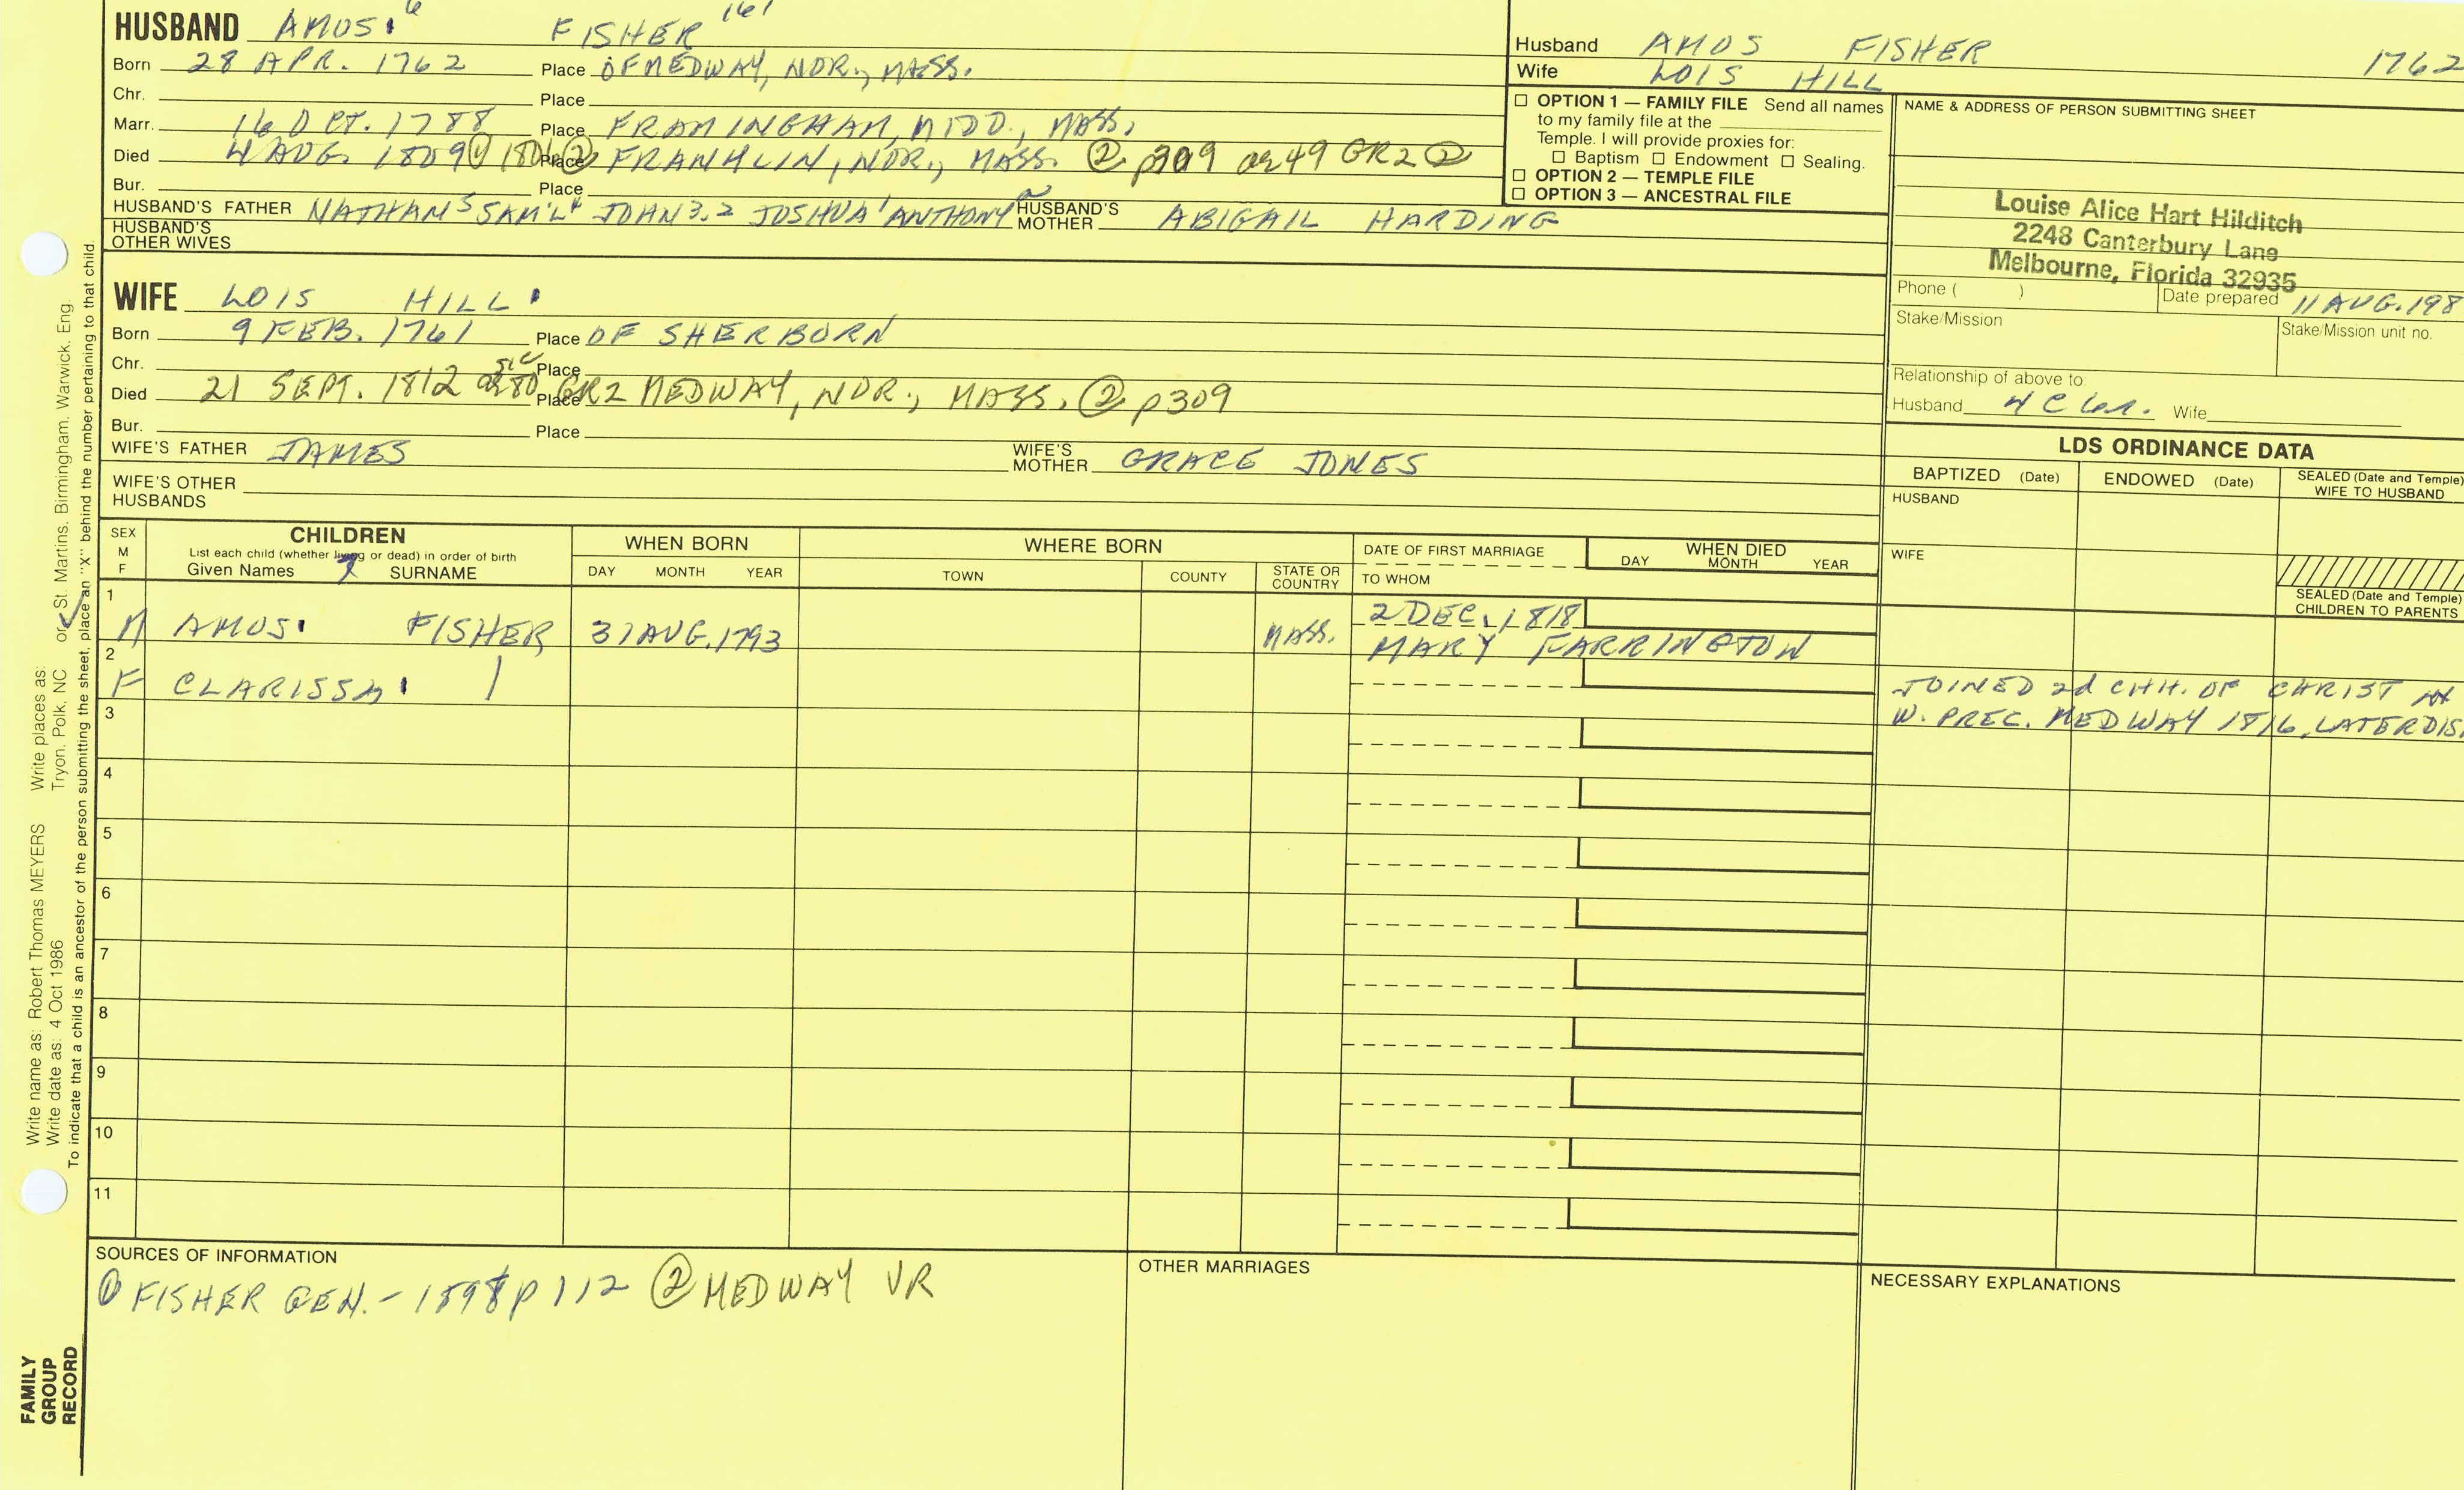 HUSBAND AMOS 6 FISHER 161
Born 28 APR. 1762 Place OF MEDWAY, NOR., MASS.
Chr. Place
Marr. 16 OCT. 1788 Place FRAMINGHAM, MIDD., MASS.
Died 4 AUG. 1809 ① 180 ② Place FRANKLIN, NOR., MASS. ② p309 ae 49 GR2 ②
Bur. Place
HUSBAND'S FATHER NATHAN 5 SAM'L 4 JOHN 3, 2 JOSHUA 1 ANTHONY HUSBAND'S MOTHER ABIGAIL HARDING
HUSBAND'S OTHER WIVES
WIFE LOIS HILL
Born 9 FEB. 1761 Place OF SHERBORN
Chr. Place
Died 21 SEPT. 1812 ae 80 sic Place GR2 MEDWAY, NOR., MASS. ② p309
Bur. Place
WIFE'S FATHER JAMES WIFE'S MOTHER GRACE JONES
WIFE'S OTHER HUSBANDS
Husband AMOS FISHER 1762
Wife LOIS HILL
☐ OPTION 1 — FAMILY FILE Send all names
to my family file at the
Temple. I will provide proxies for:
☐ Baptism ☐ Endowment ☐ Sealing.
☐ OPTION 2 — TEMPLE FILE
☐ OPTION 3 — ANCESTRAL FILE
NAME & ADDRESS OF PERSON SUBMITTING SHEET
Louise Alice Hart Hilditch
2248 Canterbury Lane
Melbourne, Florida 32935
Phone ( ) Date prepared 11 AUG. 198
Stake/Mission Stake/Mission unit no.
Relationship of above to
Husband 4 C Wife
LDS ORDINANCE DATA
BAPTIZED (Date) ENDOWED (Date) SEALED (Date and Temple) WIFE TO HUSBAND
HUSBAND
WIFE
SEALED (Date and Temple)
CHILDREN TO PARENTS
SEX M F
CHILDREN
List each child (whether living or dead) in order of birth
Given Names SURNAME
WHEN BORN
DAY MONTH YEAR
WHERE BORN
TOWN COUNTY STATE OR COUNTRY
DATE OF FIRST MARRIAGE
TO WHOM
WHEN DIED
DAY MONTH YEAR
1 M AMOS FISHER 31 AUG. 1793 MASS. 2 DEC. 1818
MARY FARRINGTON
2 F CLARISSA
JOINED 2d CHH. OF CHRIST IN
W. PREC. MEDWAY 1816, LATER DIS.
3
4
5
6
7
8
9
10
11
SOURCES OF INFORMATION
① FISHER GEN. - 1898 p 112 ② MEDWAY VR
OTHER MARRIAGES
NECESSARY EXPLANATIONS
Write name as: Robert Thomas MEYERS Write places as: or St. Martins, Birmingham, Warwick, Eng.
Write date as: 4 Oct 1986 Tryon, Polk, NC
To indicate that a child is an ancestor of the person submitting the sheet, place an "X" behind the number pertaining to that child.
FAMILY
GROUP
RECORD